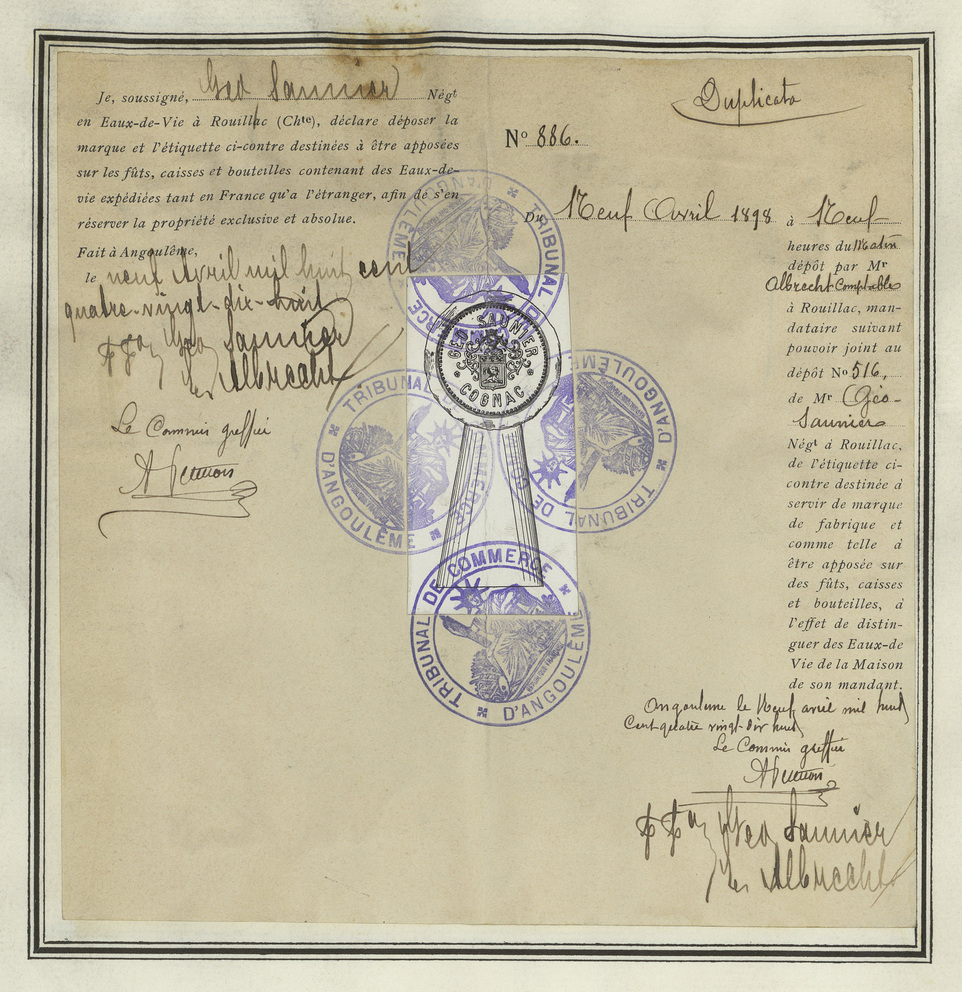 Je, soussigné, Geo Saunier Négt
en Eaux-de-Vie à Rouillac (Chte), déclare déposer la
marque et l'étiquette ci-contre destinées à être apposées
sur les fûts, caisses et bouteilles contenant des Eaux-de-
vie expédiées tant en France qu'a l'étranger, afin de s'en
réserver la propriété exclusive et absolue.
Fait à Angoulême,
le neuf Avril mil huit cent
quatre-vingt-dix-huit
ppon Geo Saunier
Albrecht
Le Commis greffier
Duplicata
No 886.
Du Neuf Avril 1898 à Neuf
heures du Matin
dépôt par Mr
Albrecht Comptable
à Rouillac, man-
dataire suivant
pouvoir joint au
dépôt No 516,
de Mr Géo-
Saunier
Négt à Rouillac,
de l'étiquette ci-
contre destinée à
servir de marque
de fabrique et
comme telle à
être apposée sur
des fûts, caisses
et bouteilles, à
l'effet de distin-
guer des Eaux-de
Vie de la Maison
de son mandant.
Angoulême le Neuf avril mil huit
Cent quatre vingt-dix huit
Le Commis greffier
ppon Geo Saunier
Albrecht
GEO SAUNIER
COGNAC
TRIBUNAL DE COMMERCE
D'ANGOULÊME
TRIBUNAL DE COMMERCE
D'ANGOULÊME
TRIBUNAL DE COMMERCE
D'ANGOULÊME
TRIBUNAL DE COMMERCE
D'ANGOULÊME